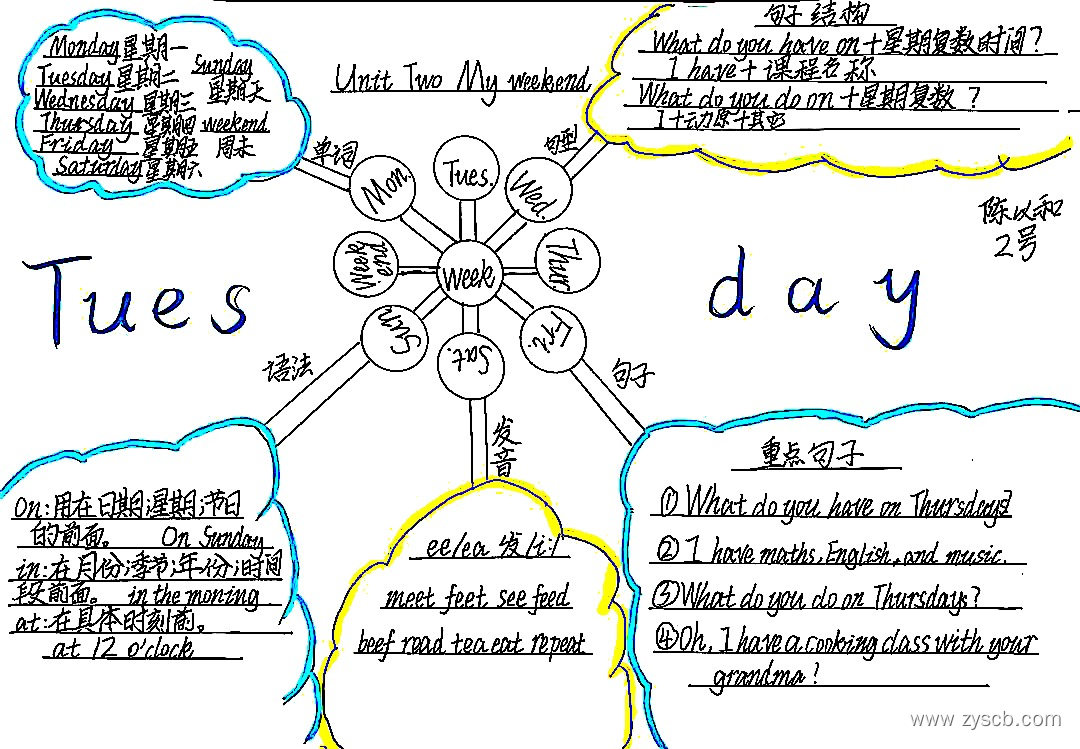 Unit Two My weekend
Monday 星期一
Tuesday 星期二
Wednesday 星期三
Thursday 星期四
Friday 星期五
Saturday 星期六
Sunday
星期天
weekend
周末
单词
句型
句子结构
What do you have on+星期复数时间?
I have+课程名称
What do you do on+星期复数?
I+动原+其它
陈以和
2号
Tues
day
Mon.
Tues.
Wed.
Week
end
week
Thur
Sun
Sat.
Fri.
语法
发音
句子
On:用在日期;星期;节日
的前面。 On Sunday
in:在月份;季节;年份;时间
段前面。 in the moning
at:在具体时刻前。
at 12 o'clock
ee/ea 发/i:/
meet feet see feed
beef read tea eat repeat
重点句子
①What do you have on Thursdays?
②I have maths,English,and music.
③What do you do on Thursdays?
④Oh, I have a cooking class with your
grandma!
www.zyscb.com